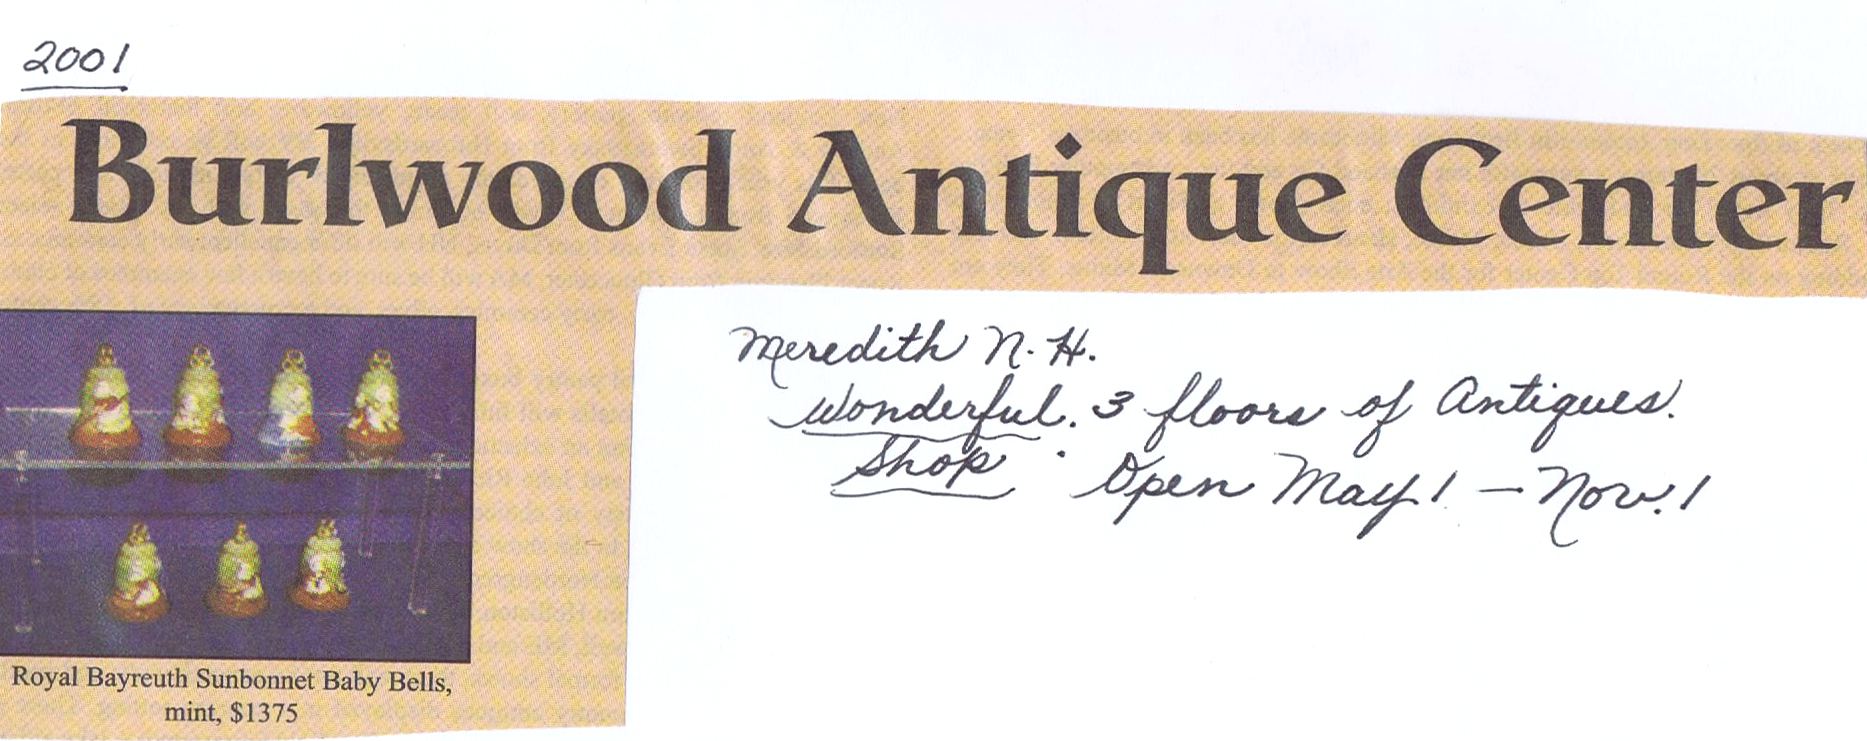 2001
Burlwood Antique Center
Meredith N.H.
Wonderful. 3 floors of Antiques.
Shop . Open May! — Nov.!
Royal Bayreuth Sunbonnet Baby Bells,
mint, $1375